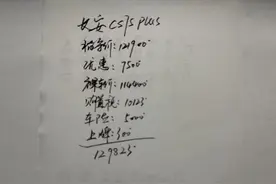 长安CS75 PLUS
指导价:121900
优惠:7500
裸车价:114400
购置税:10123
车险:5000
上牌:300
129823